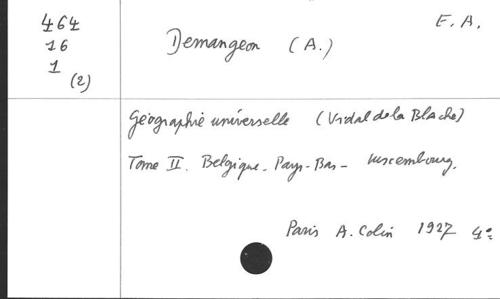 464
16
1
(2)
Demangeon (A.)
E. A.
Géographie universelle (Vidal de la Blache)
Tome II. Belgique - Pays-Bas - Luxembourg.
Paris A. Colin 1927 4°